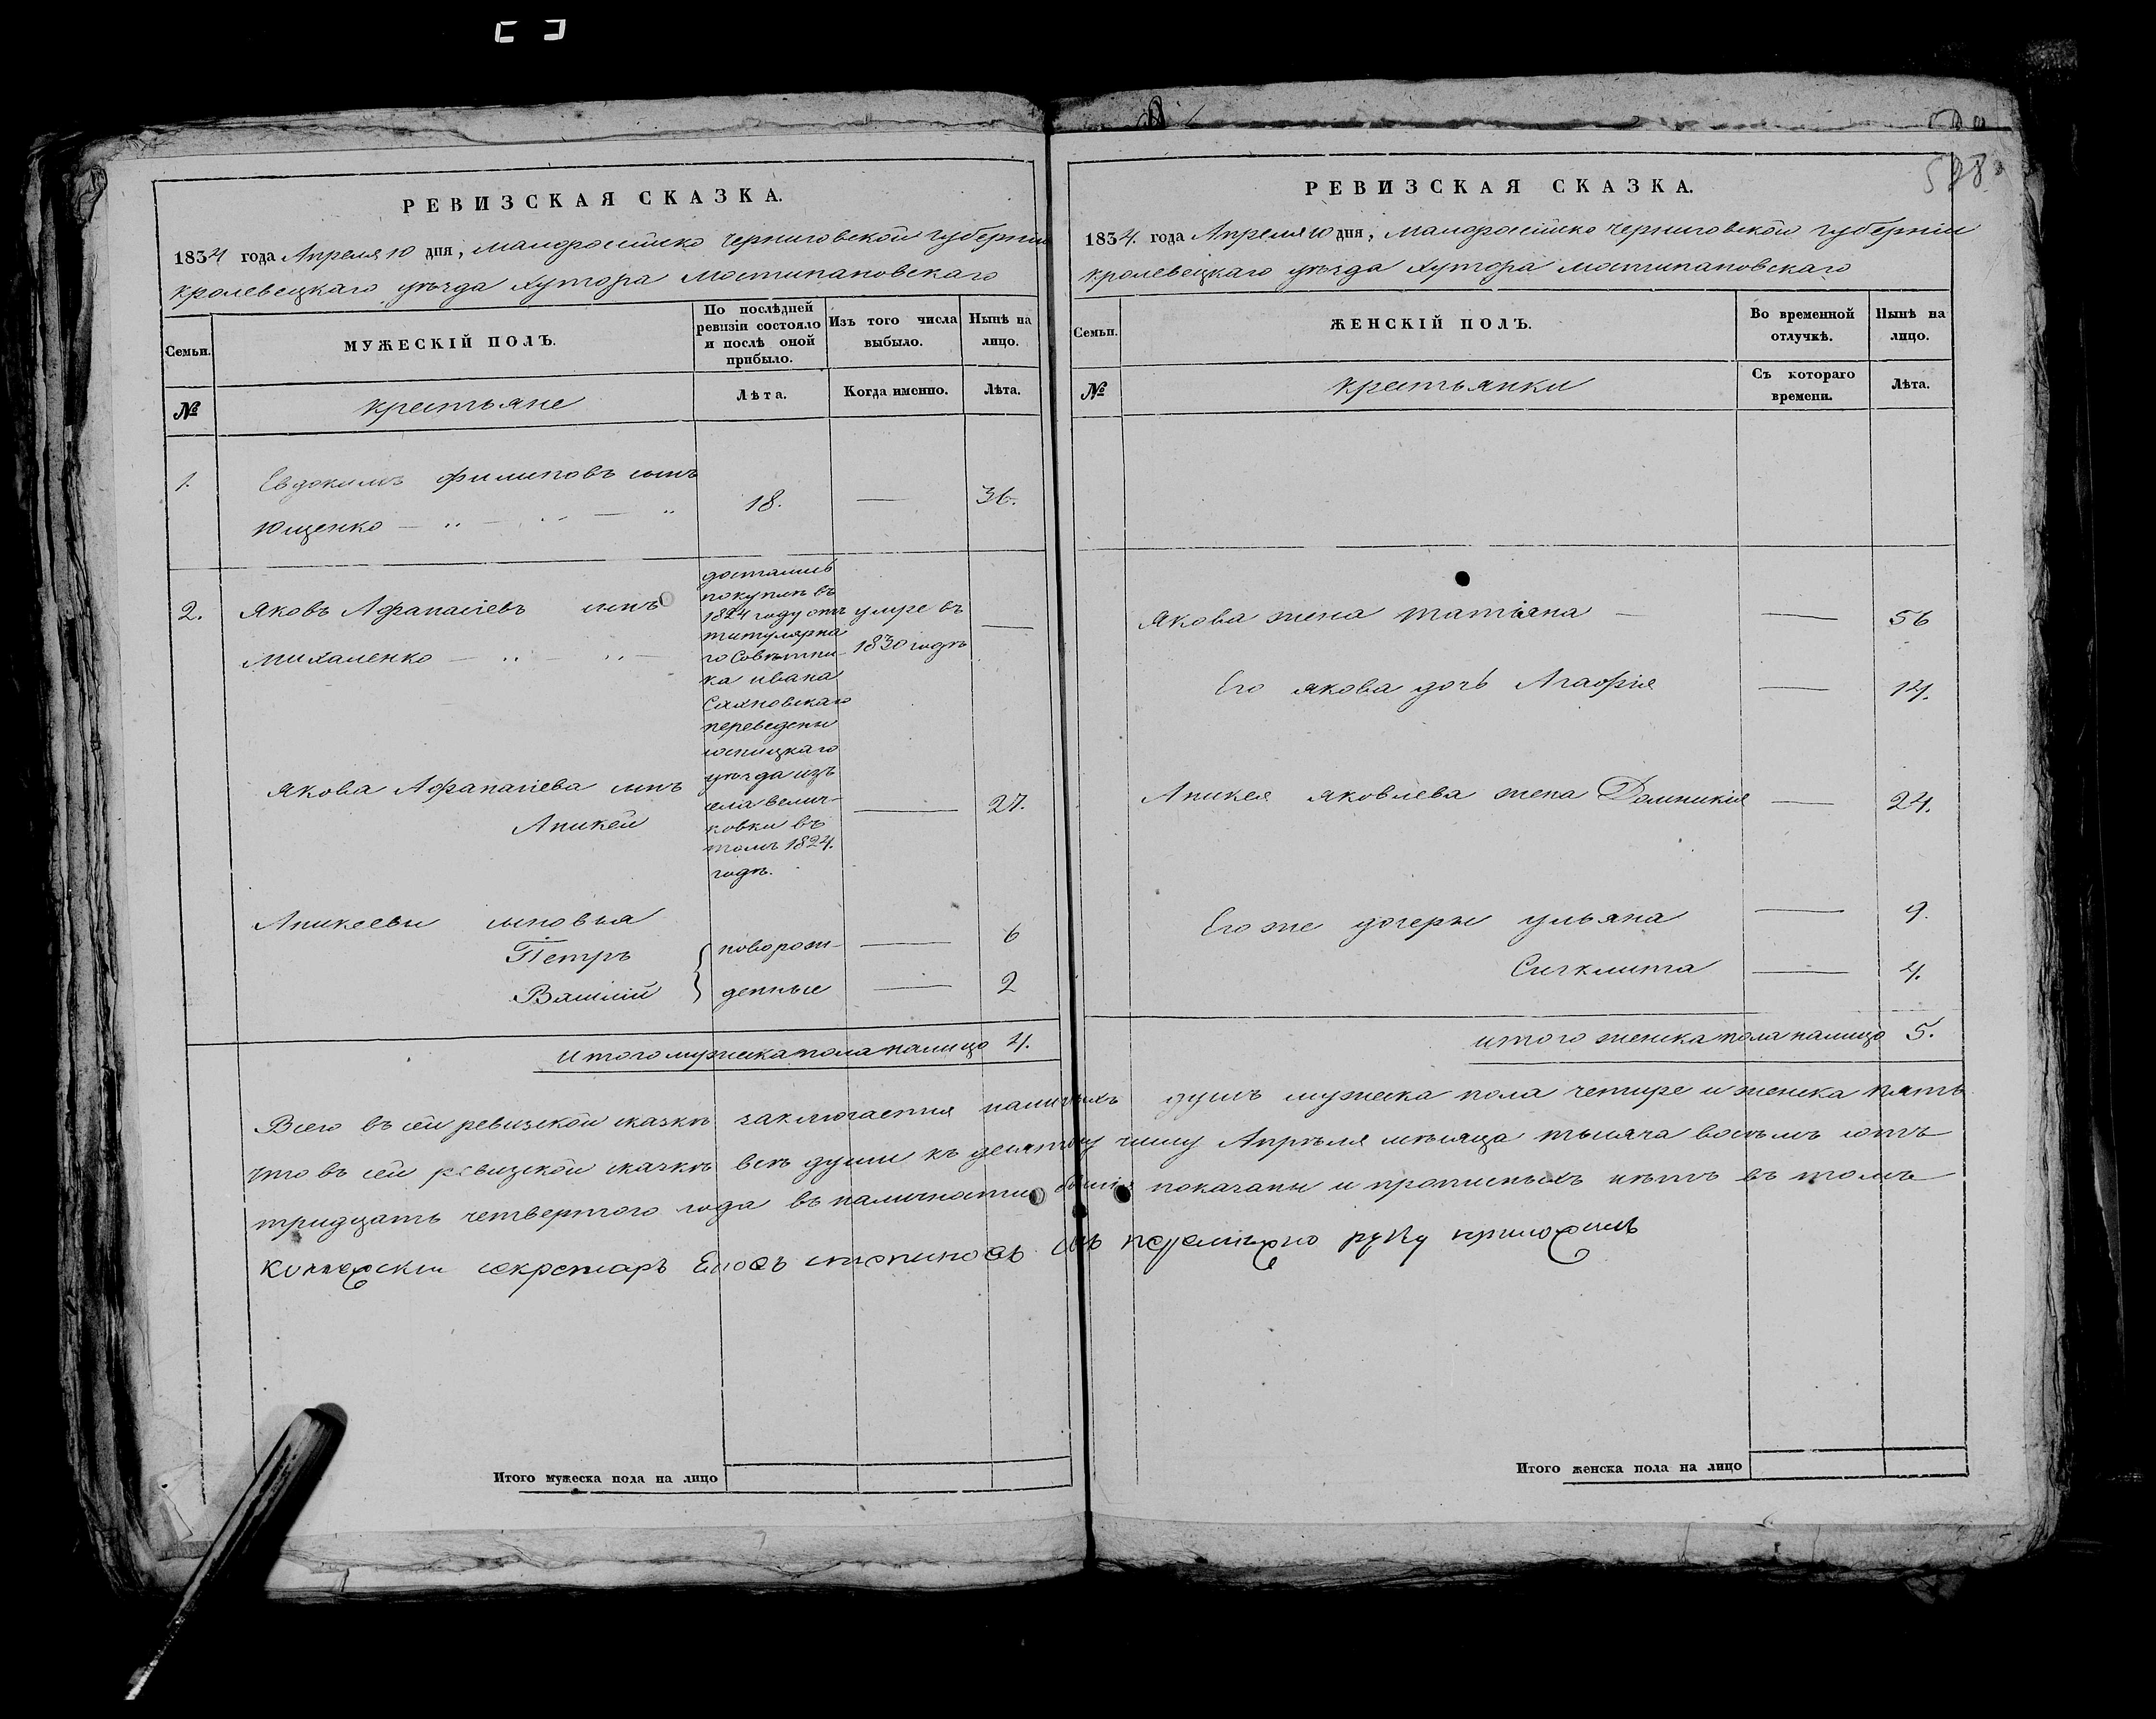 588
РЕВИЗСКАЯ СКАЗКА.
1834 года Апреля 10 дня, Малороссійско Черниговской губерніи
Кролевецкаго уѣзда Хутора Мостипановскаго
Семьи.
МУЖЕСКІЙ ПОЛЪ.
По послѣдней ревизіи состояло и послѣ оной прибыло.
Изъ того числа выбыло.
Нынѣ на лицо.
№
крестьяне
Лѣта.
Когда именно.
Лѣта.
1. Евдокимъ Филиповъ сынъ
Ющенко 18. — 36.
2. Яковъ Афанасіевъ сынъ
Михаленко
достались
покупкъ въ
1824 году отъ
титулярна
го Совѣтни-
ка ивана
Сахновскаго
переведены
сосницкаго
уѣзда изъ
села велич-
ковки въ
томъ 1824.
годѣ.
умре въ
1830 годѣ
—
Якова Афанасіева сынъ
Аникей — 27.
Аникеевы сыновья
Петръ новорож- — 6
Василій денные — 2
Итого мужеска пола налицо 4.
РЕВИЗСКАЯ СКАЗКА.
1834. года Апреля 10 дня, Малороссійско Черниговской губерніи
Кролевецкаго уѣзда Хутора Мостипановскаго
Семьи.
ЖЕНСКІЙ ПОЛЪ.
Во временной отлучкѣ.
Нынѣ на лицо.
№
крестьянки
Съ котораго времени.
Лѣта.
Якова жена Татіана — — 56
Его якова дочь Агафія — 14.
Аникея яковлева жена Домникія — 24.
Его же дочери ульяна — 9.
Сигклита — 4.
итого женска пола налицо 5.
Всего въ сей ревизской сказкѣ заключается наличныхъ душъ мужеска пола четыре и женска пять
Что въ сей ревизской сказкѣ всѣ души къ десятому числу Апрѣля мѣсяца тысяча восемъ сотъ
тридцать четвертого года въ наличности бывшія показаны и прописныхъ нѣтъ въ томъ
секретаръ руку приложилъ
Итого мужеска пола на лицо
Итого женска пола на лицо